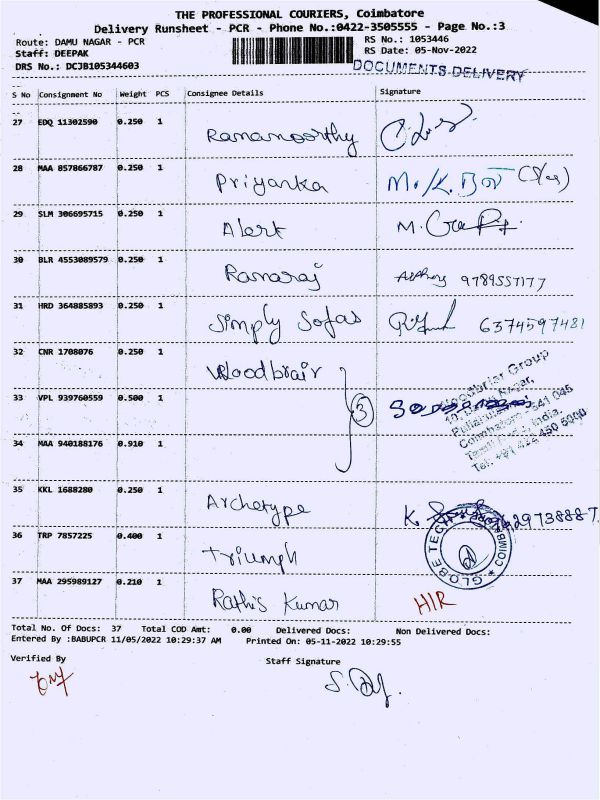 THE PROFESSIONAL COURIERS, Coimbatore
Delivery Runsheet - PCR - Phone No.:0422-3505555 - Page No.:3
Route: DAMU NAGAR - PCR
RS No.: 1053446
Staff: DEEPAK
RS Date: 05-Nov-2022
DRS No.: DCJB105344603
DOCUMENTS DELIVERY
S No Consignment No Weight PCS Consignee Details Signature
27 EDQ 11302590 0.250 1
Ramamoorthy
28 MAA 857866787 0.250 1
Priyanka
29 SLM 306695715 0.250 1
Alert M.
30 BLR 4553089579 0.250 1
Ramaraj 9789557177
31 HRD 364885893 0.250 1
Simply Sofas 6374597481
32 CNR 1708076 0.250 1
Woodbrair
33 VPL 939760559 0.500 1
3
Woodbriar Group
Nagar,
Coimbatore - 641 045
Tamil Nadu, India.
Tel: +91 424 450 5000
34 MAA 940188176 0.910 1
35 KKL 1688280 0.250 1
Archetype K.
36 TRP 7857225 0.400 1
Triumph
GLOBE TECH COIMB
37 MAA 295989127 0.210 1
Rathis Kumar HIR
Total No. Of Docs: 37 Total COD Amt: 0.00 Delivered Docs: Non Delivered Docs:
Entered By :BABUPCR 11/05/2022 10:29:37 AM Printed On: 05-11-2022 10:29:55
Verified By Staff Signature